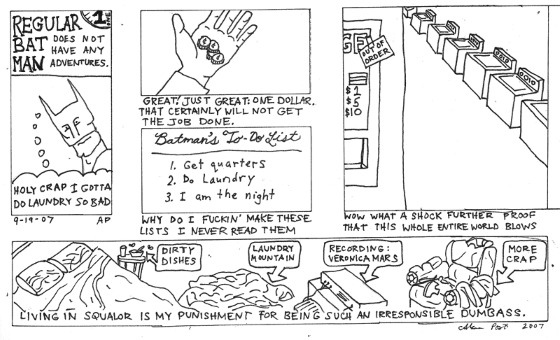 REGULAR 1
BAT DOES NOT
MAN HAVE ANY
ADVENTURES.
HOLY CRAP I GOTTA
DO LAUNDRY SO BAD
9-19-07 AP
GREAT. JUST GREAT. ONE DOLLAR.
THAT CERTAINLY WILL NOT GET
THE JOB DONE.
Batman's To-Do List
1. Get quarters
2. Do Laundry
3. I am the night
WHY DO I FUCKIN' MAKE THESE
LISTS I NEVER READ THEM
OUT OF
ORDER
$1
$5
$10
NOW WHAT A SHOCK FURTHER PROOF
THAT THIS WHOLE ENTIRE WORLD BLOWS
DIRTY
DISHES
LAUNDRY
MOUNTAIN
RECORDING:
VERONICA MARS
MORE
CRAP
LIVING IN SQUALOR IS MY PUNISHMENT FOR BEING SUCH AN IRRESPONSIBLE DUMBASS.
2007